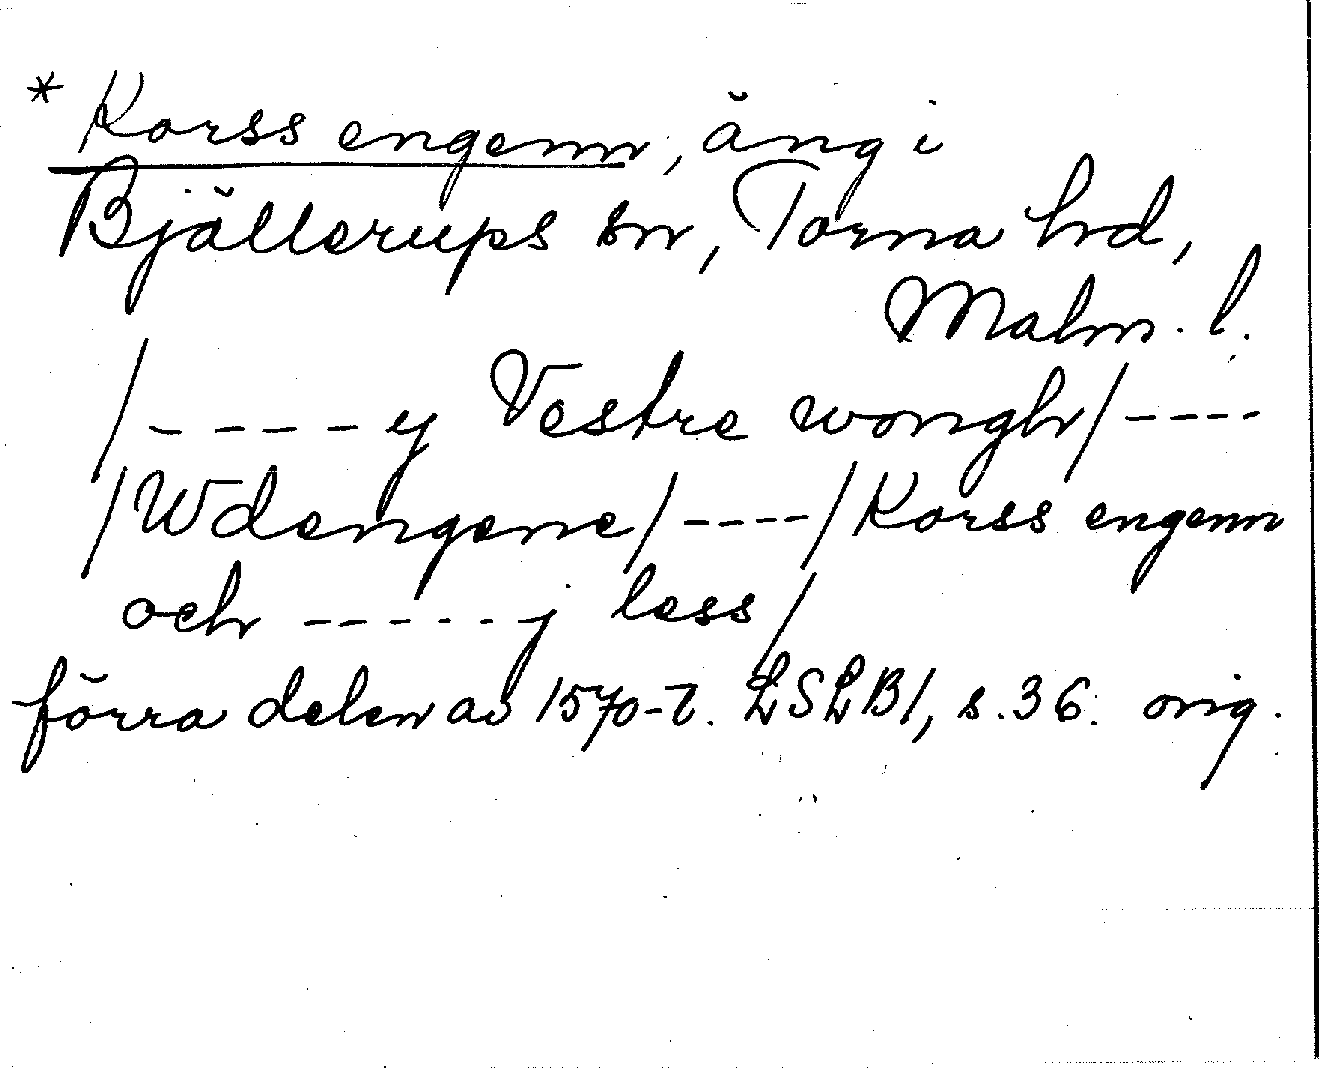 * Korss engenn, äng i
Bjällerups sn, Torna hd,
Malm. l.
/ - - - - - y Vestre wongh / - - - -
/ Wdengene / - - - - / Korss engenn
och - - - - - j less /
förra delen av 1570-t. LSLB1, s. 36. orig.